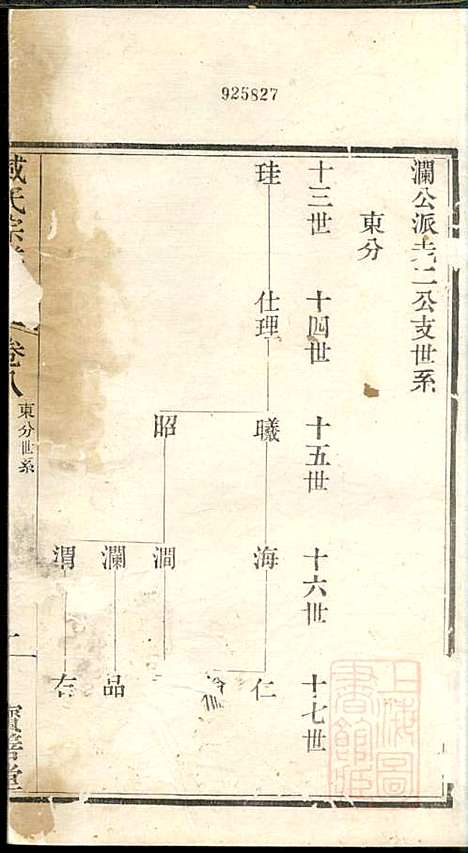 925827
瀾公派十二公支世系
東分
十三世
十四世
十五世
十六世
十七世
珪
仕理
曦
昭
海
澗
瀾
渭
仁
品
右
臧氏宗
卷八
東分世系
上海圖書館藏